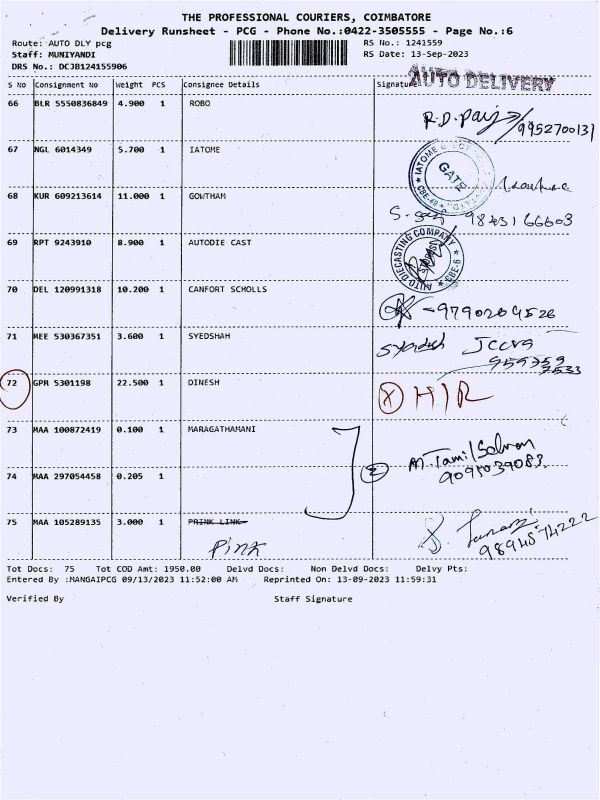 THE PROFESSIONAL COURIERS, COIMBATORE
Delivery Runsheet - PCG - Phone No.:0422-3505555 - Page No.:6
Route: AUTO DLY pcg RS No.: 1241559
Staff: MUNIYANDI RS Date: 13-Sep-2023
DRS No.: DCJB124155906
AUTO DELIVERY
S No Consignment No Weight PCS Consignee Details Signature
66 BLR 5550836849 4.900 1 ROBO
R.D. 9952700131
67 NGL 6014349 5.700 1 IATOME
GATE
68 KUR 609213614 11.000 1 GOWTHAM
9843166603
69 RPT 9243910 8.900 1 AUTODIE CAST
AUTO DIECASTING COMPANY CBE-6
70 DEL 120991318 10.200 1 CANFORT SCHOLLS
71 MEE 530367351 3.600 1 SYEDSHAH
72 GPM 5301198 22.500 1 DINESH
73 MAA 100872419 0.100 1 MARAGATHAMANI
2 M. Tamil Selvan
9095039083
74 MAA 297054458 0.205 1
75 MAA 105289135 3.000 1 PRINK LINK
Pink
Tot Docs: 75 Tot COD Amt: 1950.00 Delvd Docs: Non Delvd Docs: Delvy Pts:
Entered By :MANGAIPCG 09/13/2023 11:52:00 AM Reprinted On: 13-09-2023 11:59:31
Verified By Staff Signature